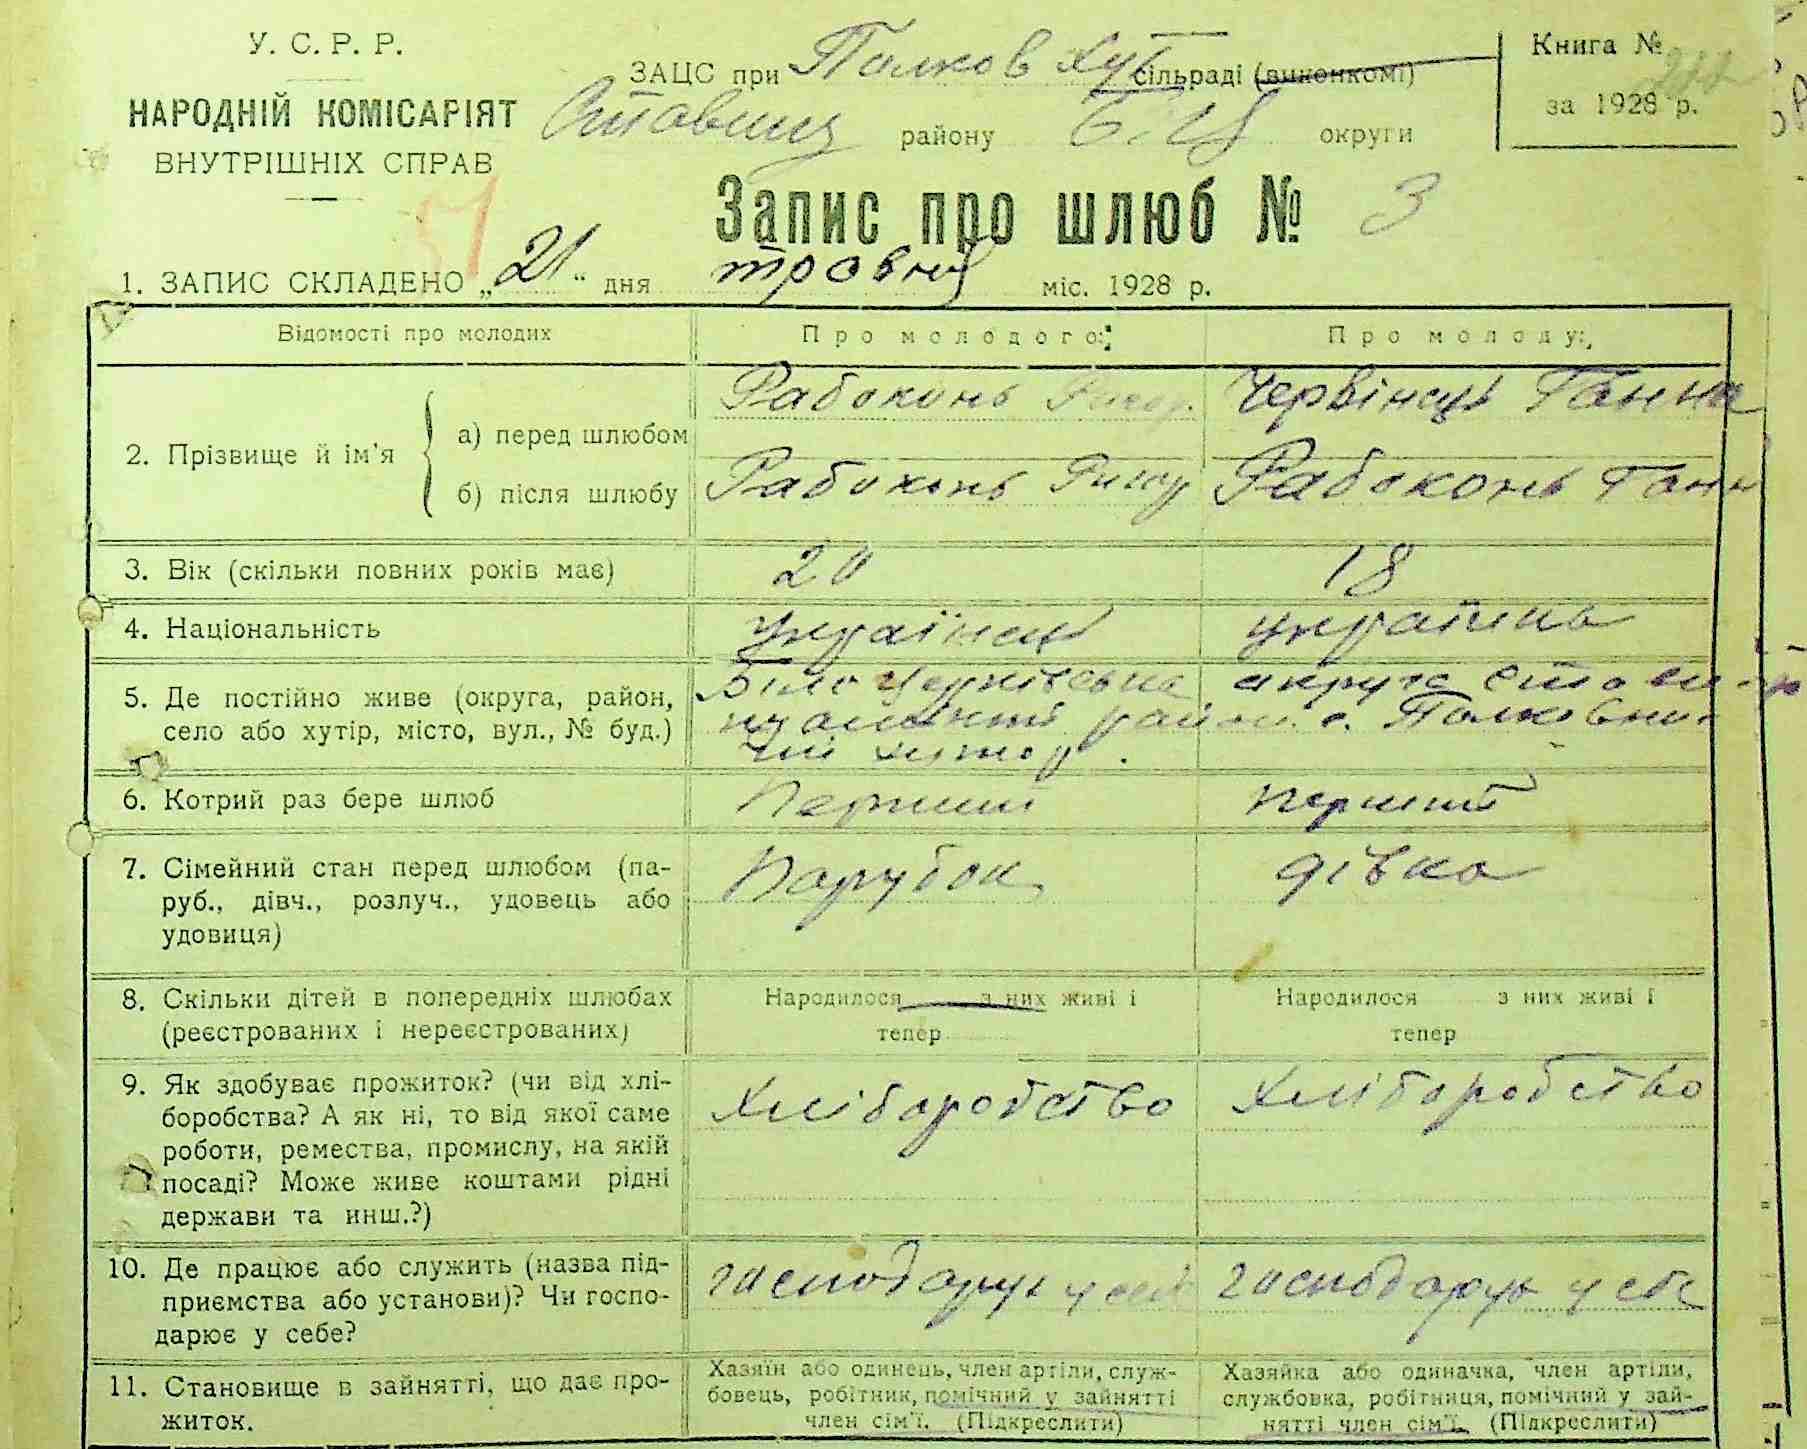 У. С. Р. Р.
НАРОДНІЙ КОМІСАРІЯТ
ВНУТРІШНІХ СПРАВ
ЗАЦС при Полков Хут сільраді (виконкомі)
Ставищ району Б.Ц. округи
Книга №
за 1928 р.
Запис про шлюб № 3
51
1. ЗАПИС СКЛАДЕНО „21“ дня травня міс. 1928 р.
Відомості про молодих Про молодого: Про молоду:
2. Прізвище й ім'я
а) перед шлюбом Рабоконь Григор. Червінець Ганна
б) після шлюбу Рабоконь Григор Рабоконь Ганн
3. Вік (скільки повних років має) 20 18
4. Національність українец україньь
5. Де постійно живе (округа, район, Біло Церківська округа Стави-
село або хутір, місто, вул., № буд.) район с. Полковни-
чий хутор.
6. Котрий раз бере шлюб Перший перший
7. Сімейний стан перед шлюбом (па- Парубок дівка
руб., дівч., розлуч., удовець або
удовиця)
8. Скільки дітей в попередніх шлюбах Народилося з них живі і Народилося з них живі і
(реєстрованих і нереєстрованих) тепер тепер
9. Як здобуває прожиток? (чи від хлі- Хліборобство Хліборобство
боробства? А як ні, то від якої саме
роботи, ремества, промислу, на якій
посаді? Може живе коштами рідні
держави та инш.?)
10. Де працює або служить (назва під- господарує у себе господарує у себе
приємства або установи)? Чи госпо-
дарює у себе?
11. Становище в зайнятті, що дає про-
житок.
Хазяїн або одинець, член артіли, служ-
бовець, робітник, помічний у зайнятті
член сім'ї. (Підкреслити)
Хазяйка або одиначка, член артіли,
службовка, робітниця, помічний у зай-
нятті член сім'ї. (Підкреслити)